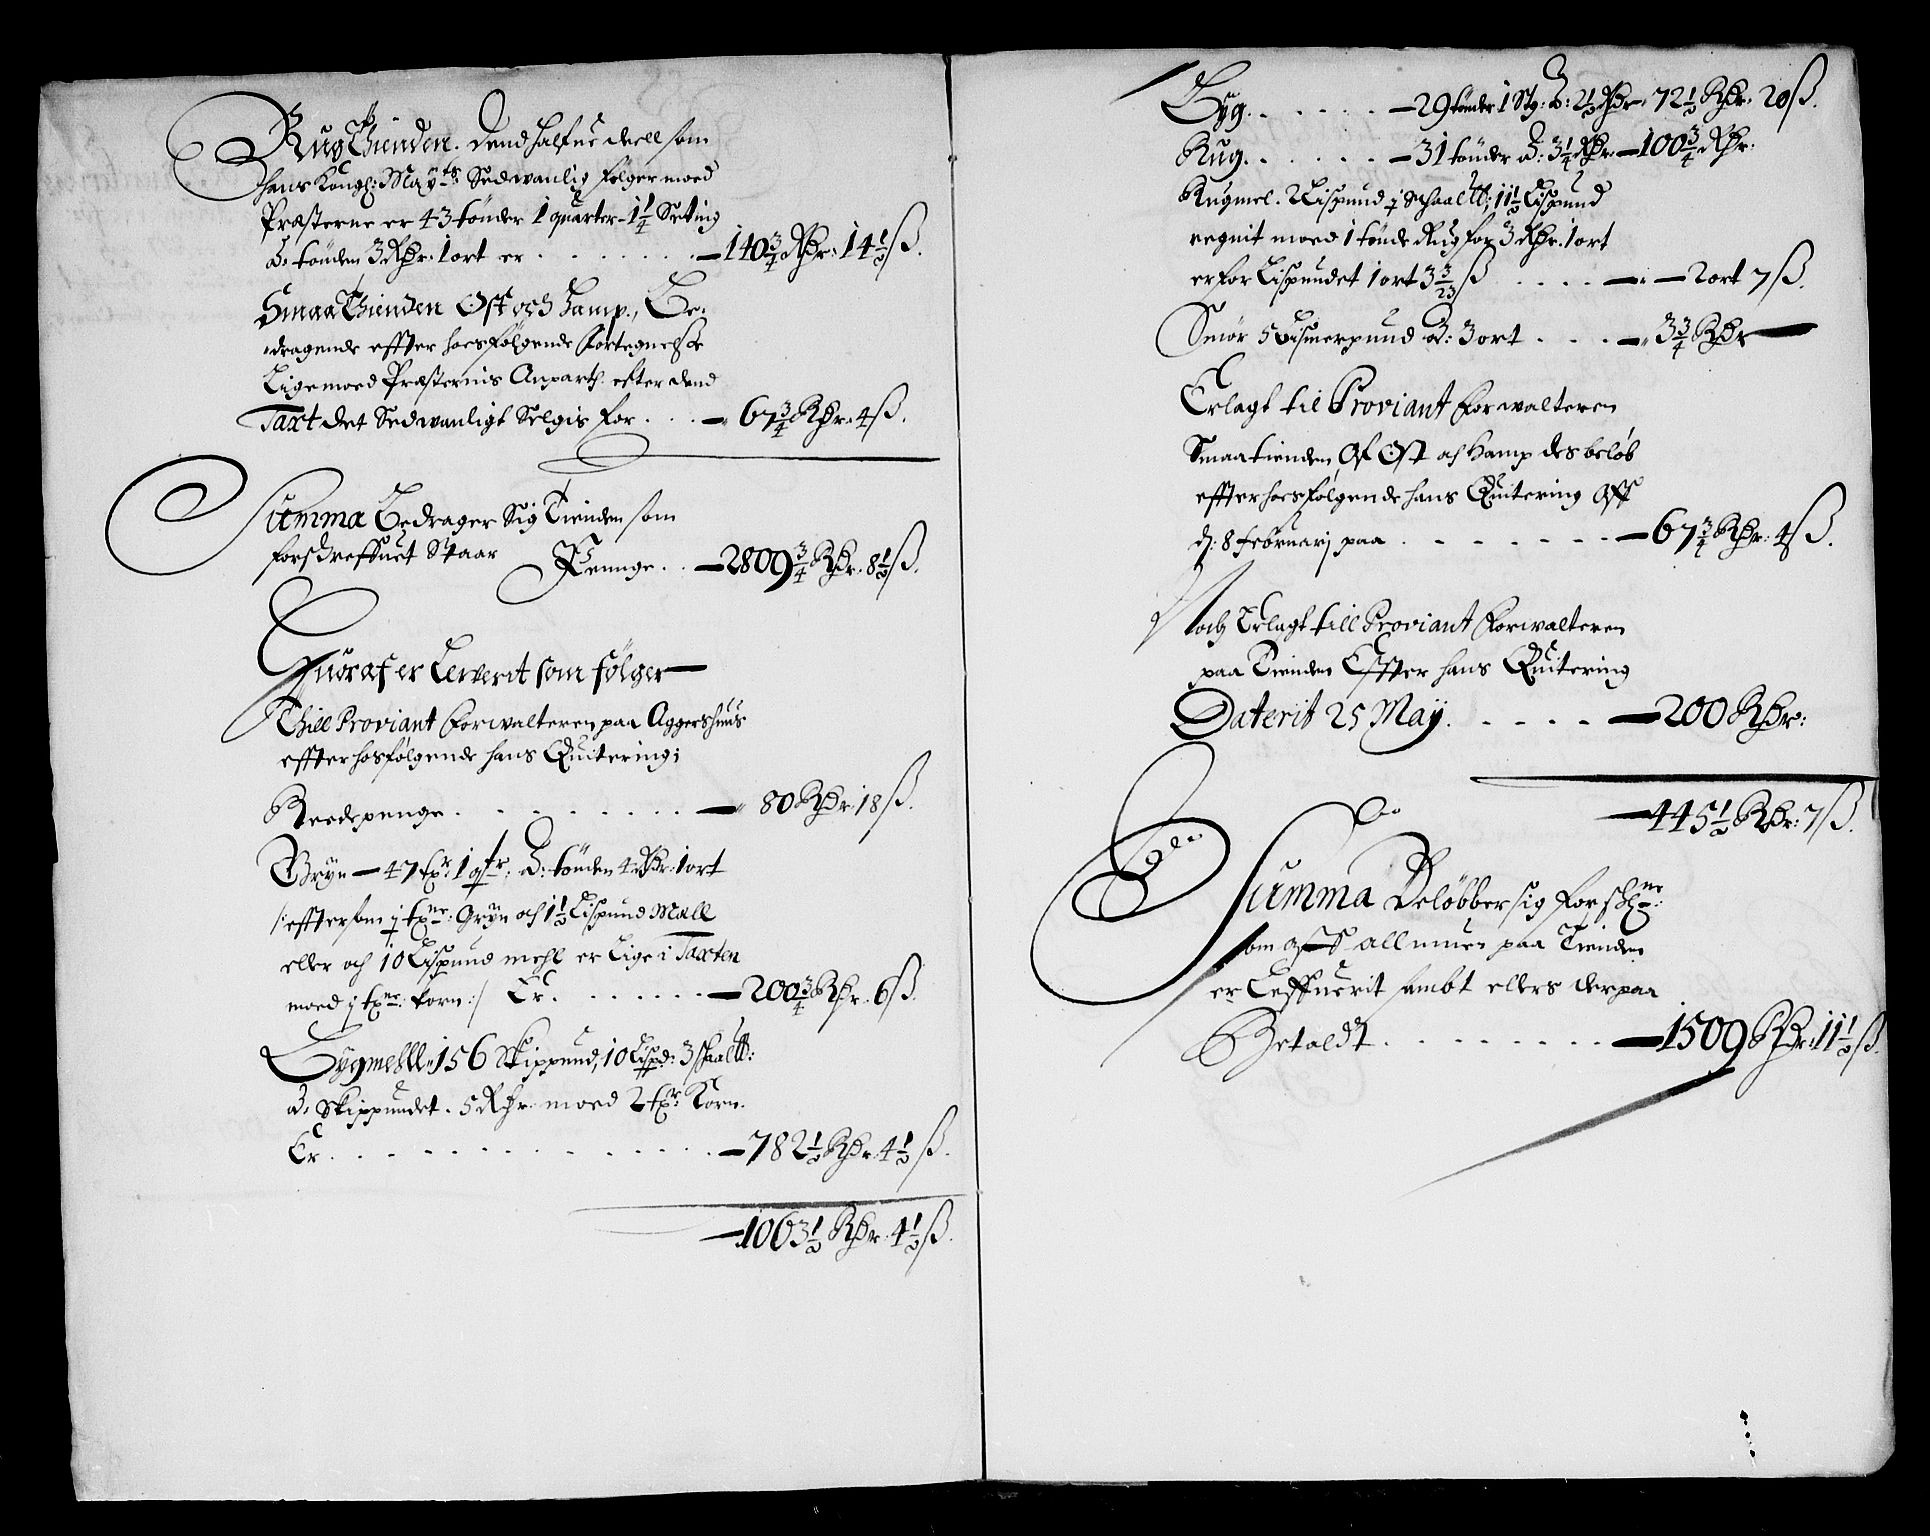 RugThienden. Dend halfue deell som
hans Kongl: Maÿts: Sedwanlig følger med
Præsterne er 43 tønder 1 quarter 1 1/4 Setting
a: tønden 3 Rdr. 1 ort er . . . . . . — 140 3/4 Rdr. 14 1/2 ß.
SmaaThienden Ost och Hamp, Be-
dragende effter hoesfølgende Fortegnelße
Lige moed Præsternis Anparth. efter dend
Taxt det Sedwanligt Selgis for . . . — 67 3/4 Rdr. 4 ß.
Summa Bedrager Sig Tienden som
forschreffuet Staar Penge . . — 2809 3/4 Rdr. 8 1/2 ß.
Huoraf er Leverit som følger
Thill Proviant Forwalteren paa Aggershuus
effter hosfølgende hans Quitering;
Reedepenge . . . . . . . . . — 80 Rdr. 18 ß.
Gryn — 47 txr 1 qtr; a: tønden 4 Rdr. 1 ort
/: effter som j txne: Gryn och 1 1/2 Lispund Mæll
eller och 10 Lispund mehl er Lige i Taxten
moed j txne: korn :/ Er . . . . . . — 200 3/4 Rdr. 6 ß.
Bygmehll 156 Skippund, 10 Lispd: 3 schaal tt:
a: Skippundet. 5 Rdr. moed 2 txr: Korn.
Er . . . . . . . . . . . . — 782 1/2 Rdr. 4 1/2 ß.
— 1063 1/2 Rdr. 4 1/2 ß.
Byg. . . . . . — 29 tønder 1 Stg: a: 2 1/2 Rdr. 72 1/2 Rdr. 20 ß.
Rug. . . . . . — 31 tønder a: 3 1/4 Rdr. — 100 3/4 Rdr.
Rugmel. 2 Lispund j schaal tt; 11 1/2 Lispund
regnit moed 1 tønde Rug for 3 Rdr. 1 ort
er for Lispundet 1 ort 3 3/23 ß . . . . — 2 ort 7 ß.
Smør 5 Bismerpund a: 3 ort . . . — 3 3/4 Rdr
Erlagt til Proviant Forwalteren
Smaatienden Af Ost och Hamp des beløb
effter hoesfølgende hans Quitering Aff
d: 8 februarj paa . . . . . . . — 67 3/4 Rdr. 4 ß.
Noch Erlagt till Proviant Forwalteren
paa Tienden Effter hans Quitering
Daterit 25 Maÿ . . . . . — 200 Rdr:
— 445 1/2 Rdr. 7 ß.
Summa Beløbber sig forschne:
som aff Allmuen paa Tienden
er Leffuerit sambt ellers derpaa
Betaldt . . . . . . . . . — 1509 Rdr. 11 1/2 ß.